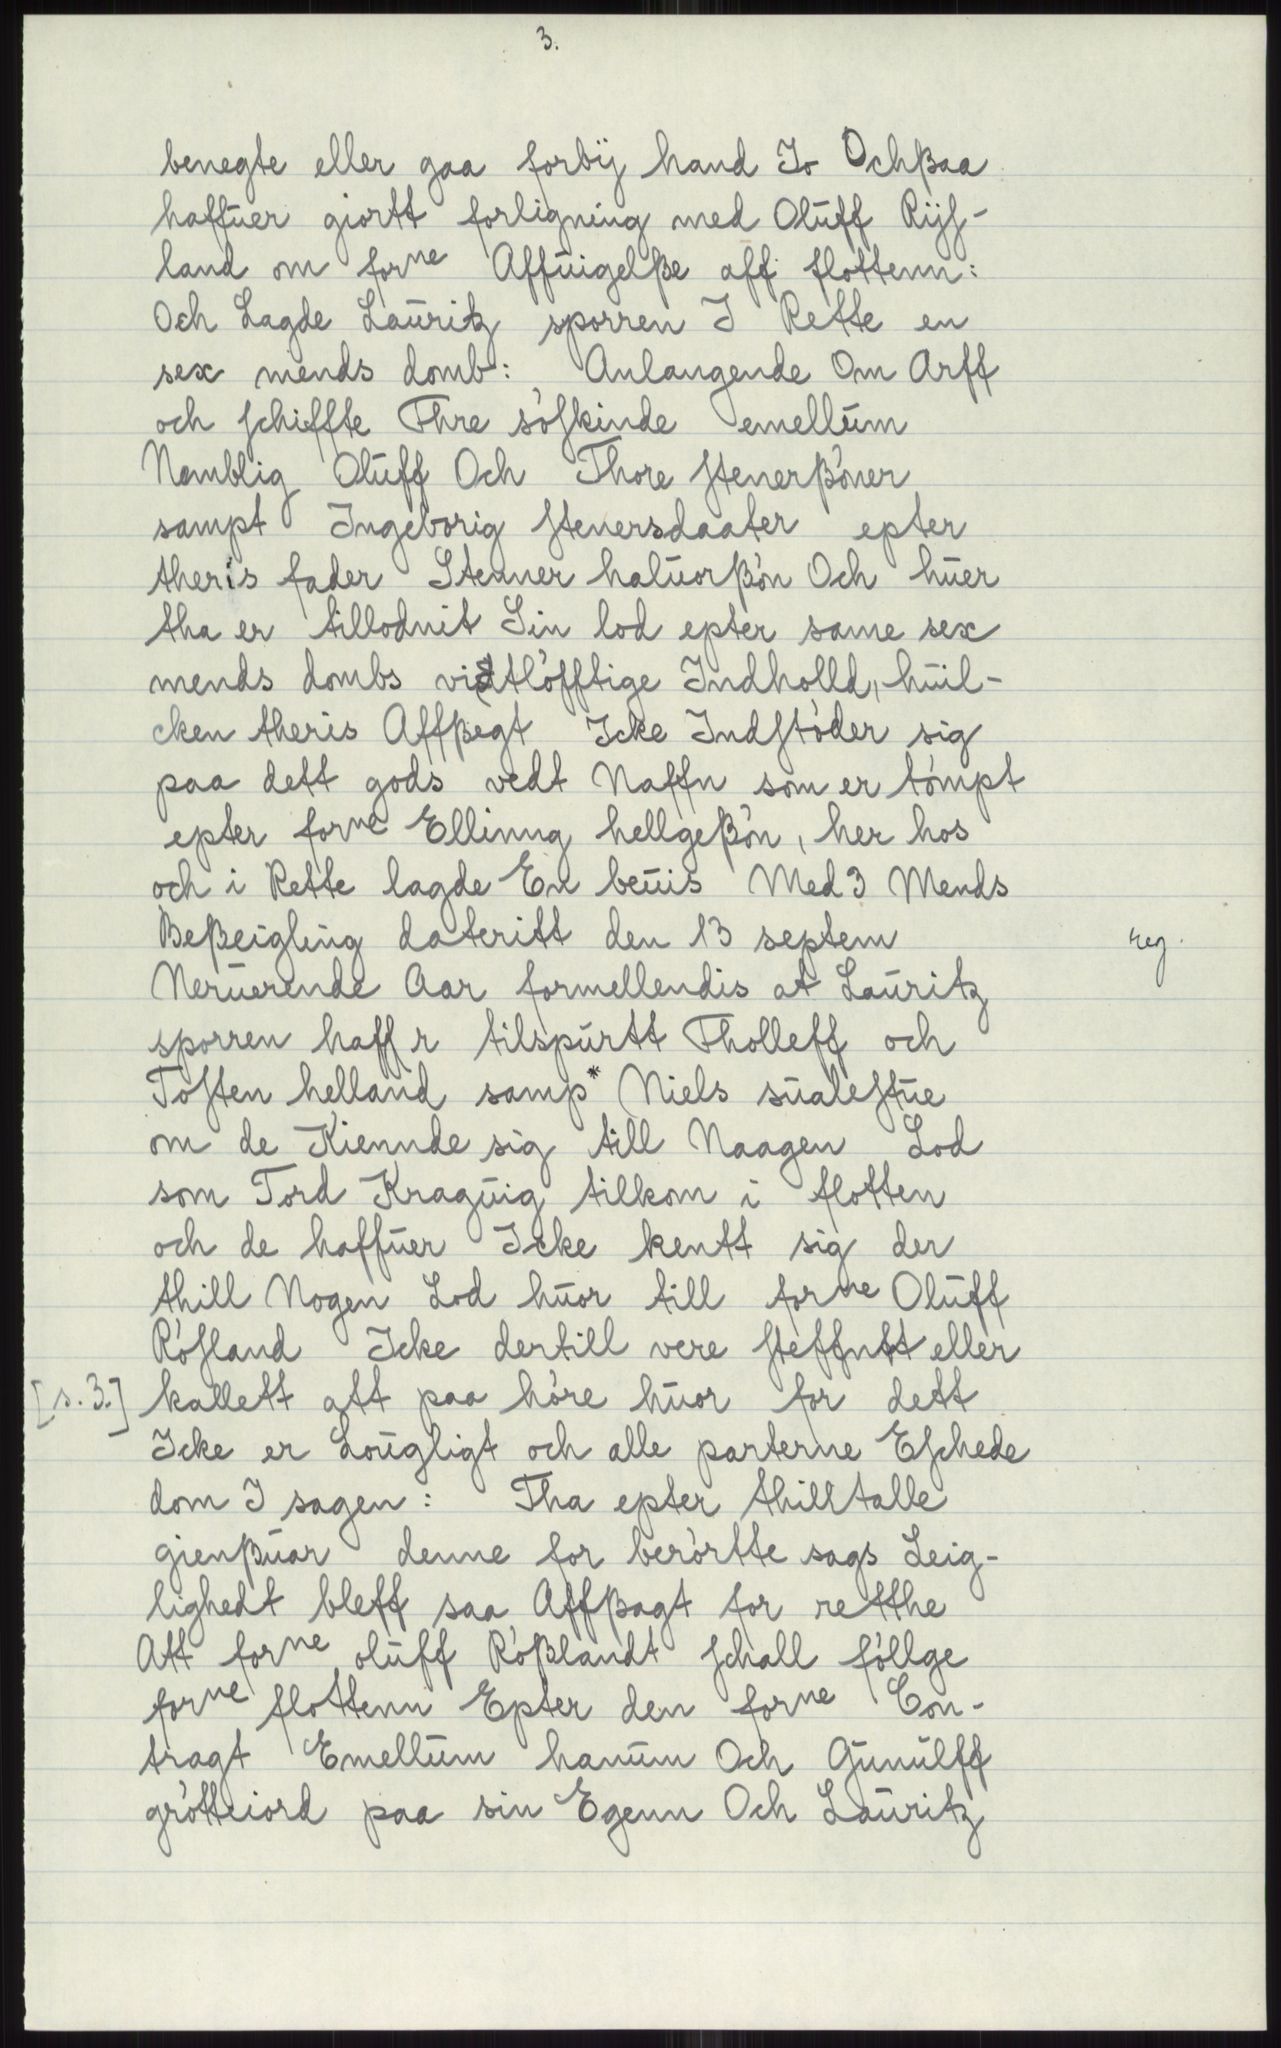 3.
benegte eller gaa forbij hand Jo Ochßaa
haffuer giortt forligning med Oluff Rijs-
land om forne Affuigelße aff flottenn:
Och Lagde Lauritz sporren I Rette en
sex mends domb: Anlangende Om Arff
och schiffte Thre söskinde emellum
Namblig Oluff Och Thore stenerßöner
sampt Ingeborig stenersdaater epter
theris fader Stenner haluorßön Och huer
tha er tillodnit Sin lod epter same sex
mends dombs vidtlöfftige Indholld, huil-
cken theris Affßegt Icke Indstöder sig
paa dett gods vedt Naffn som er tömpt
epter forne Ellinng hellgeßön, her hos
och i Rette lagde En beuis Med 3 Mends
Beßeigling dateritt den 13 septem
Neruerende Aar formellendis at Lauritz
reg.
sporren haff r tilspurtt Tholleff och
Tosten helland samp* Niels sualestue
om de Kiennde sig till Naagen Lod
som Tord Kraguig tilkom i flotten
och de haffuer Icke kentt sig der
thill Nogen Lod huor till forne Oluff
Rösland Icke dertill vere steffntt eller
[s. 3.] kallett att paa höre huor for dett
Icke er Lougligt och alle parterne Eschede
dom I sagen: Tha epter thilltalle
gienßuar denne for berörtte sags Leig-
lighedt bleff saa Affßagt for retthe
Att forne oluff Rößlandt schall föllge
forne flottenn Epter den forne Con-
tragt Emellum hanum Och Gunulff
grötteiord paa sin Egenn Och Lauritz